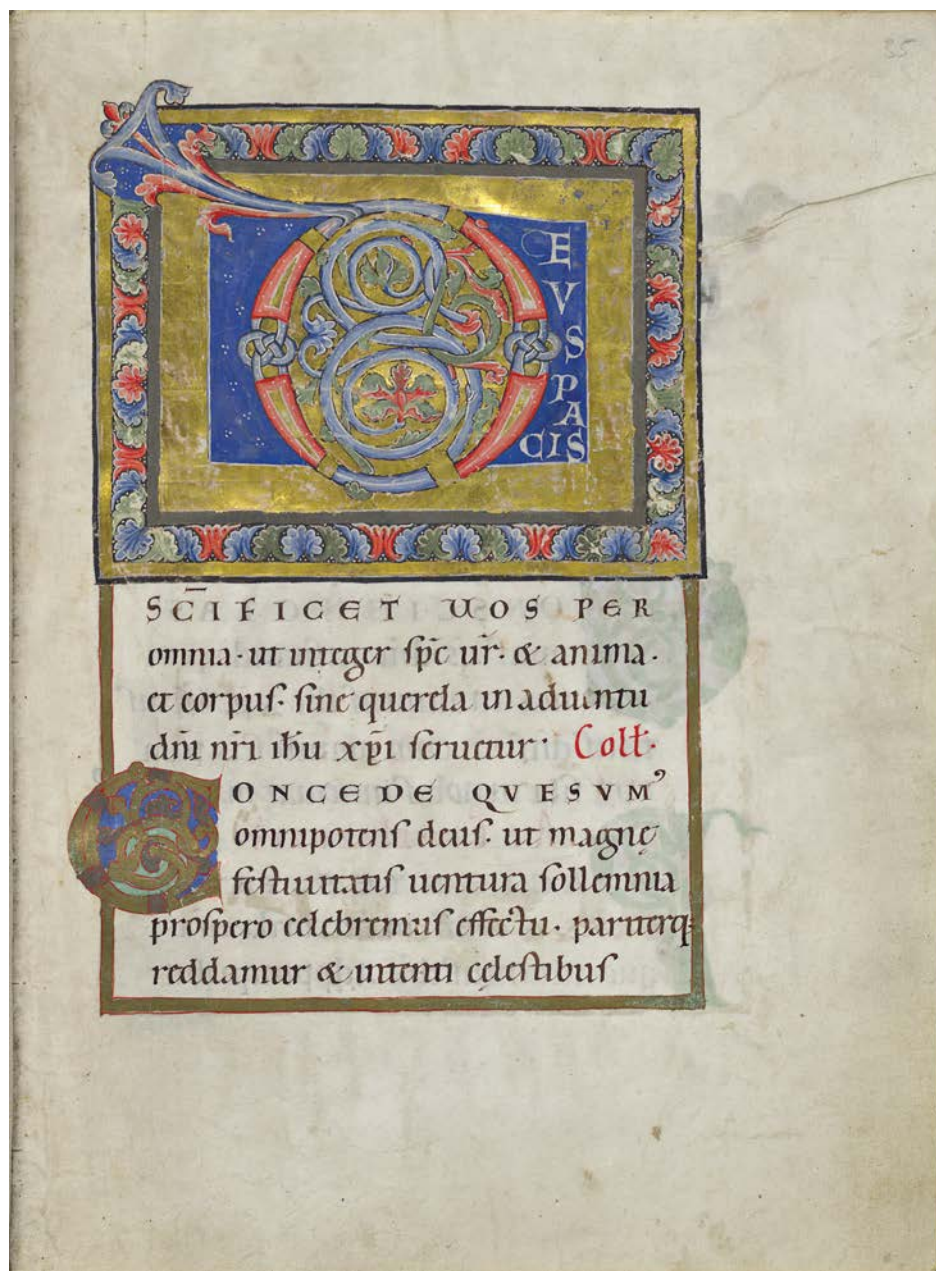 35
D
E
V
S
P
A
CIS
SC̄IFICET UOS PER
omnia · ut integer sp̄c ur̄ · & anima ·
et corpus · sine querela in aduentu
dn̄i nr̄i ih̄u xp̄i seruetur · Coll̄ ·
CONCEDE QVESVMꝰ
omnipotens deus · ut magnę
festiuitatis uentura sollemnia
prospero celebremus effectu · pariterq;
reddamur & intenti cęlestibus